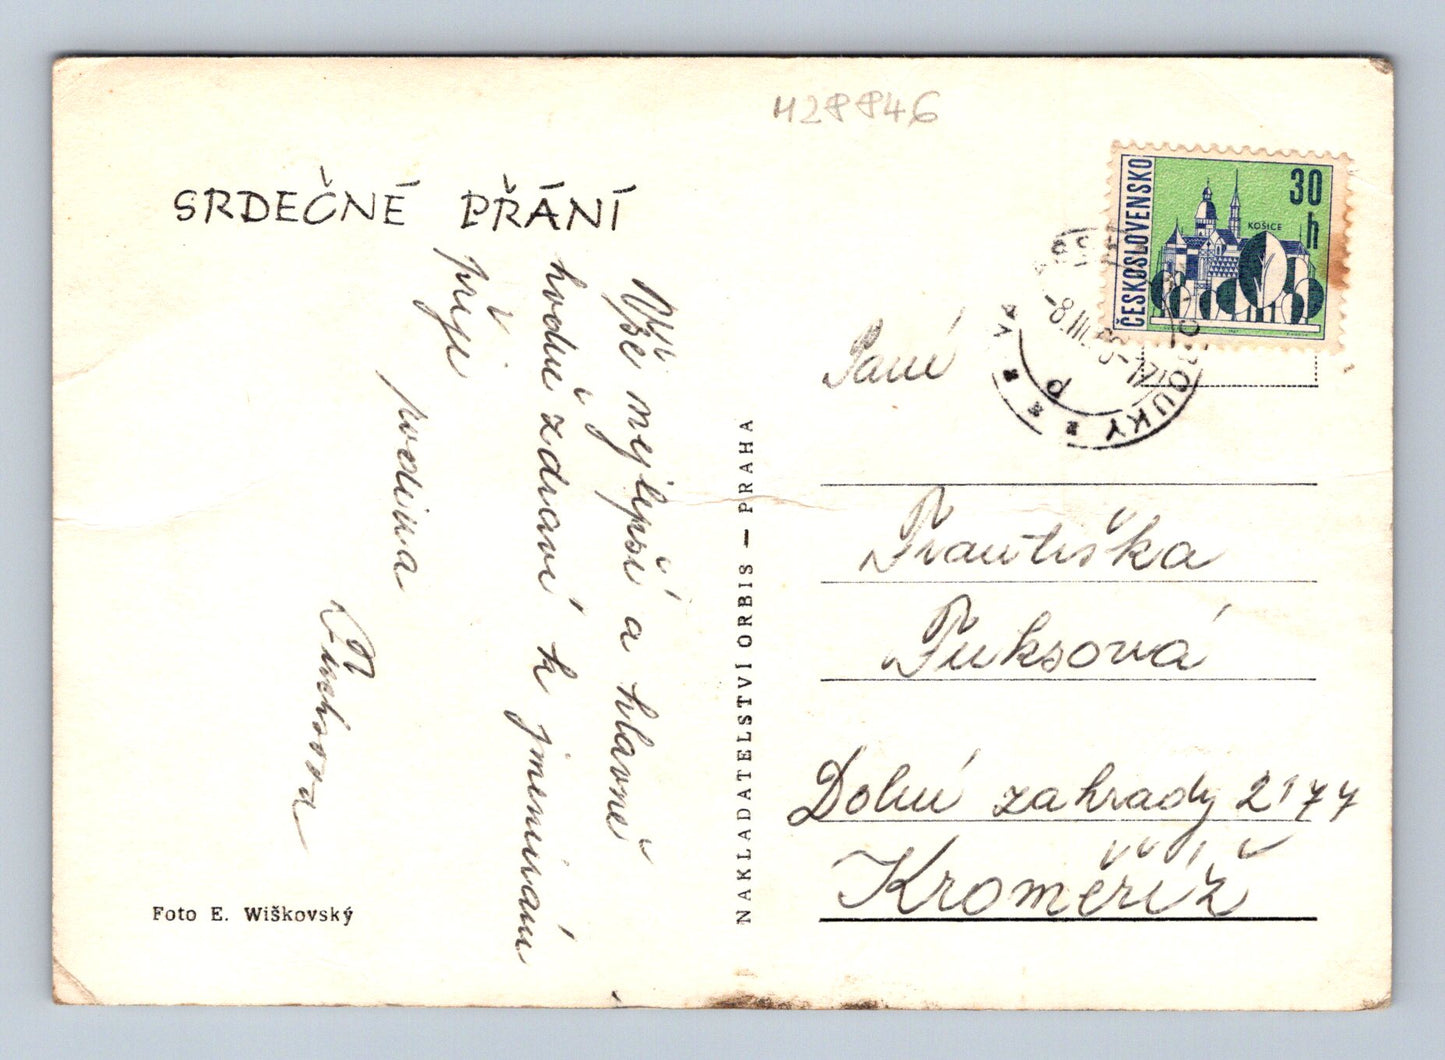 H28846
SRDEČNÉ PŘÁNÍ
Vše nejlepší a hlavně
hodně zdraví k jmeninám
přeje
rodina
Foto E. Wiškovský
NAKLADATELSTVÍ ORBIS — PRAHA
ČESKOSLOVENSKO
30
h
KOŠICE
-8.III.66-17
OUKY
P
Paní
Františka
Fuksová
Dolní zahrady 2177
Kroměříž